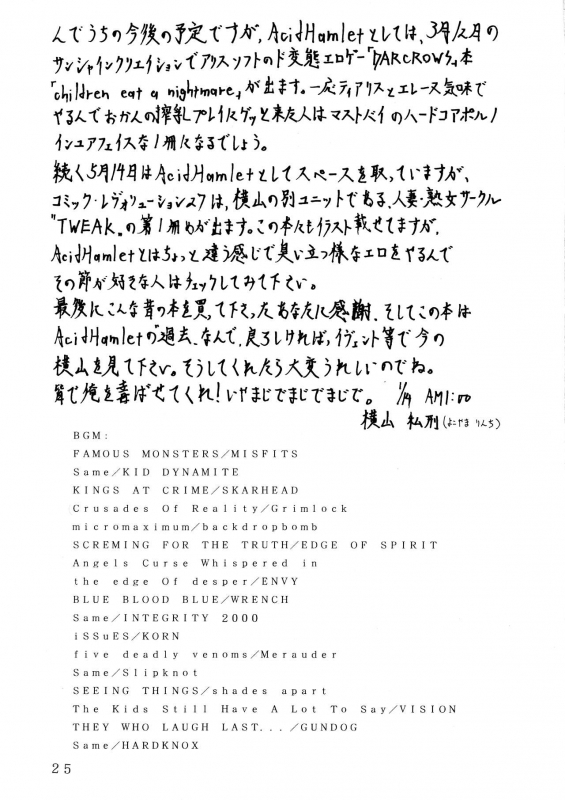 んでうちの今後の予定ですが、AcidHamletとしては、3月12日の
サンシャインクリエイションでアリスソフトのド変態エロゲー「DARCROWS」本
「children eat a nightmare」が出ます。一応ティアリスとエレーヌ気味で
やるんでおかんの搾乳プレイにグッと来た人はマストバイのハードコアポルノ
インユアフェイスな1冊になるでしょう。
続く5月14日はAcidHamletとしてスペースを取っていますが、
コミック・レヴォリューション27は、横山の別ユニットである、人妻・熟女サークル
"TWEAK"の第1冊めが出ます。この本にもイラスト載せてますが、
AcidHamletとはちょっと違う感じで臭い立つ様なエロをやるんで
その節が好きな人はチェックしてみて下さい。
最後にこんな昔の本を買って下さったあなたに感謝、そしてこの本は
AcidHamletの「過去」なんで、良ろしければ、イヴェント等で今の
横山を見て下さい。そうしてくれたら大変うれしいのでね。
皆で俺を喜ばせてくれ!いやまじでまじでまじで。 1/19 AM1:00
横山 私刑(よこやま りんち)
BGM:
FAMOUS MONSTERS/MISFITS
Same/KID DYNAMITE
KINGS AT CRIME/SKARHEAD
Crusades Of Reality/Grimlock
micromaximum/backdropbomb
SCREMING FOR THE TRUTH/EDGE OF SPIRIT
Angels Curse Whispered in
the edge Of desper/ENVY
BLUE BLOOD BLUE/WRENCH
Same/INTEGRITY 2000
iSSuES/KORN
five deadly venoms/Merauder
Same/Slipknot
SEEING THINGS/shades apart
The Kids Still Have A Lot To Say/VISION
THEY WHO LAUGH LAST.../GUNDOG
Same/HARDKNOX
25